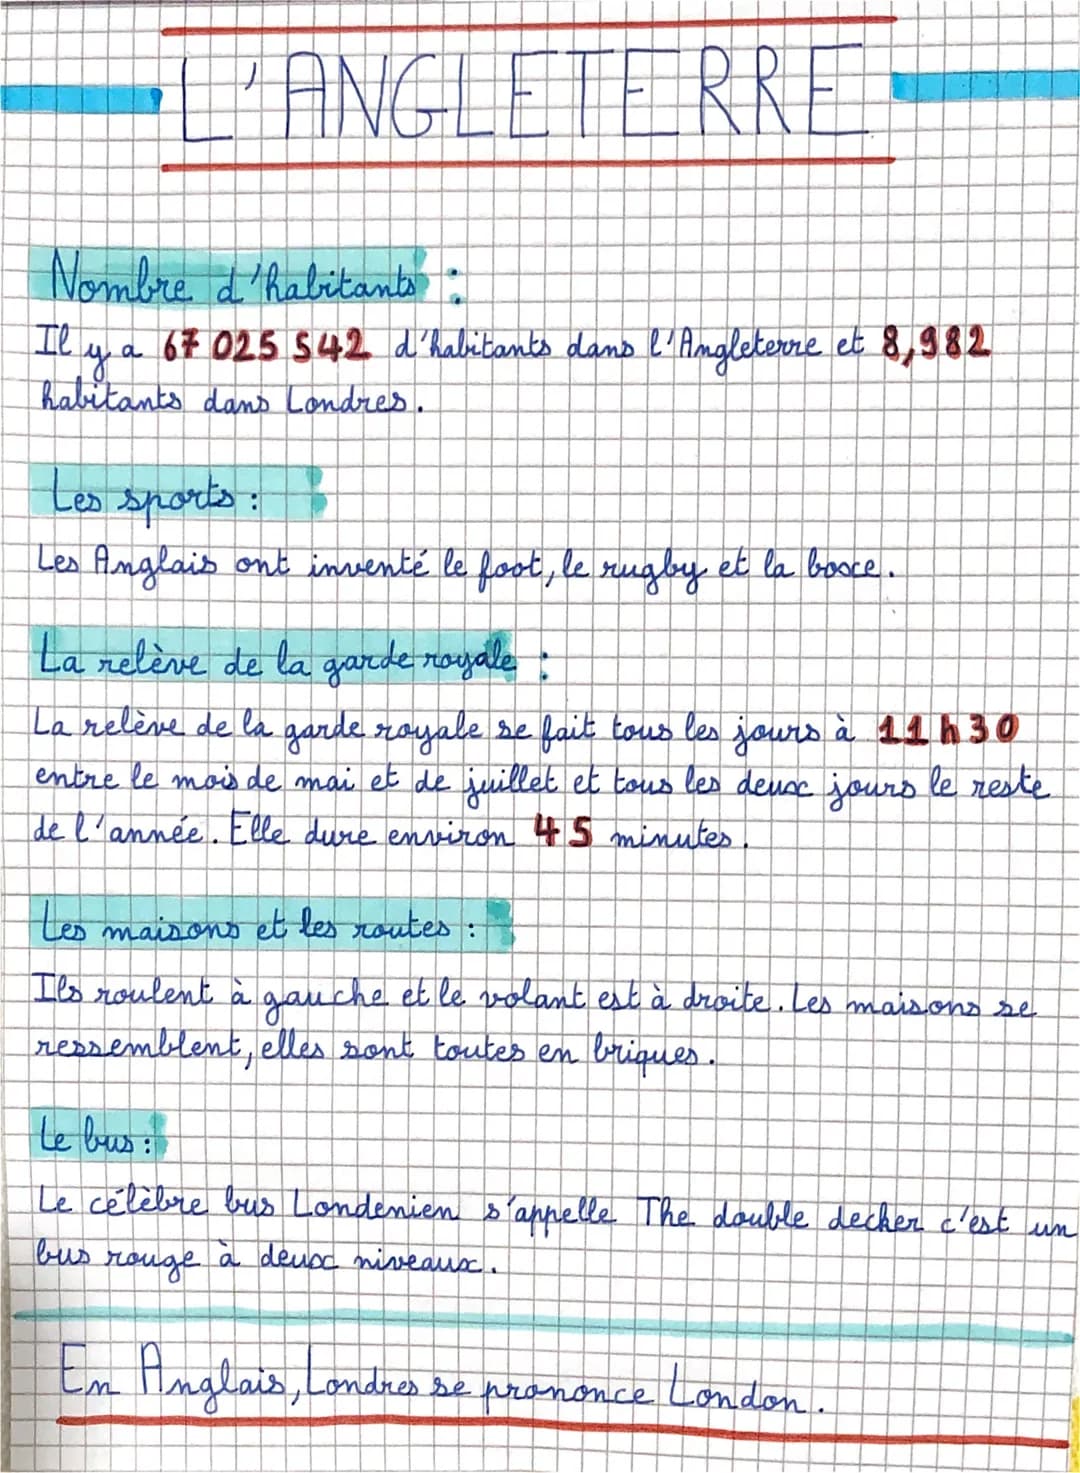 L'ANGLETERRE
Nombre d'habitants :
Il y a 67 025 542 d'habitants dans l'Angleterre et 8,982
habitants dans Londres.
Les sports :
Les Anglais ont inventé le foot, le rugby et la boxe.
La relève de la garde royale :
La relève de la garde royale se fait tous les jours à 11 h 30
entre le mois de mai et de juillet et tous les deux jours le reste
de l'année. Elle dure environ 45 minutes.
Les maisons et les routes :
Ils roulent à gauche et le volant est à droite. Les maisons se
ressemblent, elles sont toutes en briques.
Le bus :
Le célèbre bus Londenien s'appelle The double decher c'est un
bus rouge à deux niveaux.
En Anglais, Londres se prononce London.